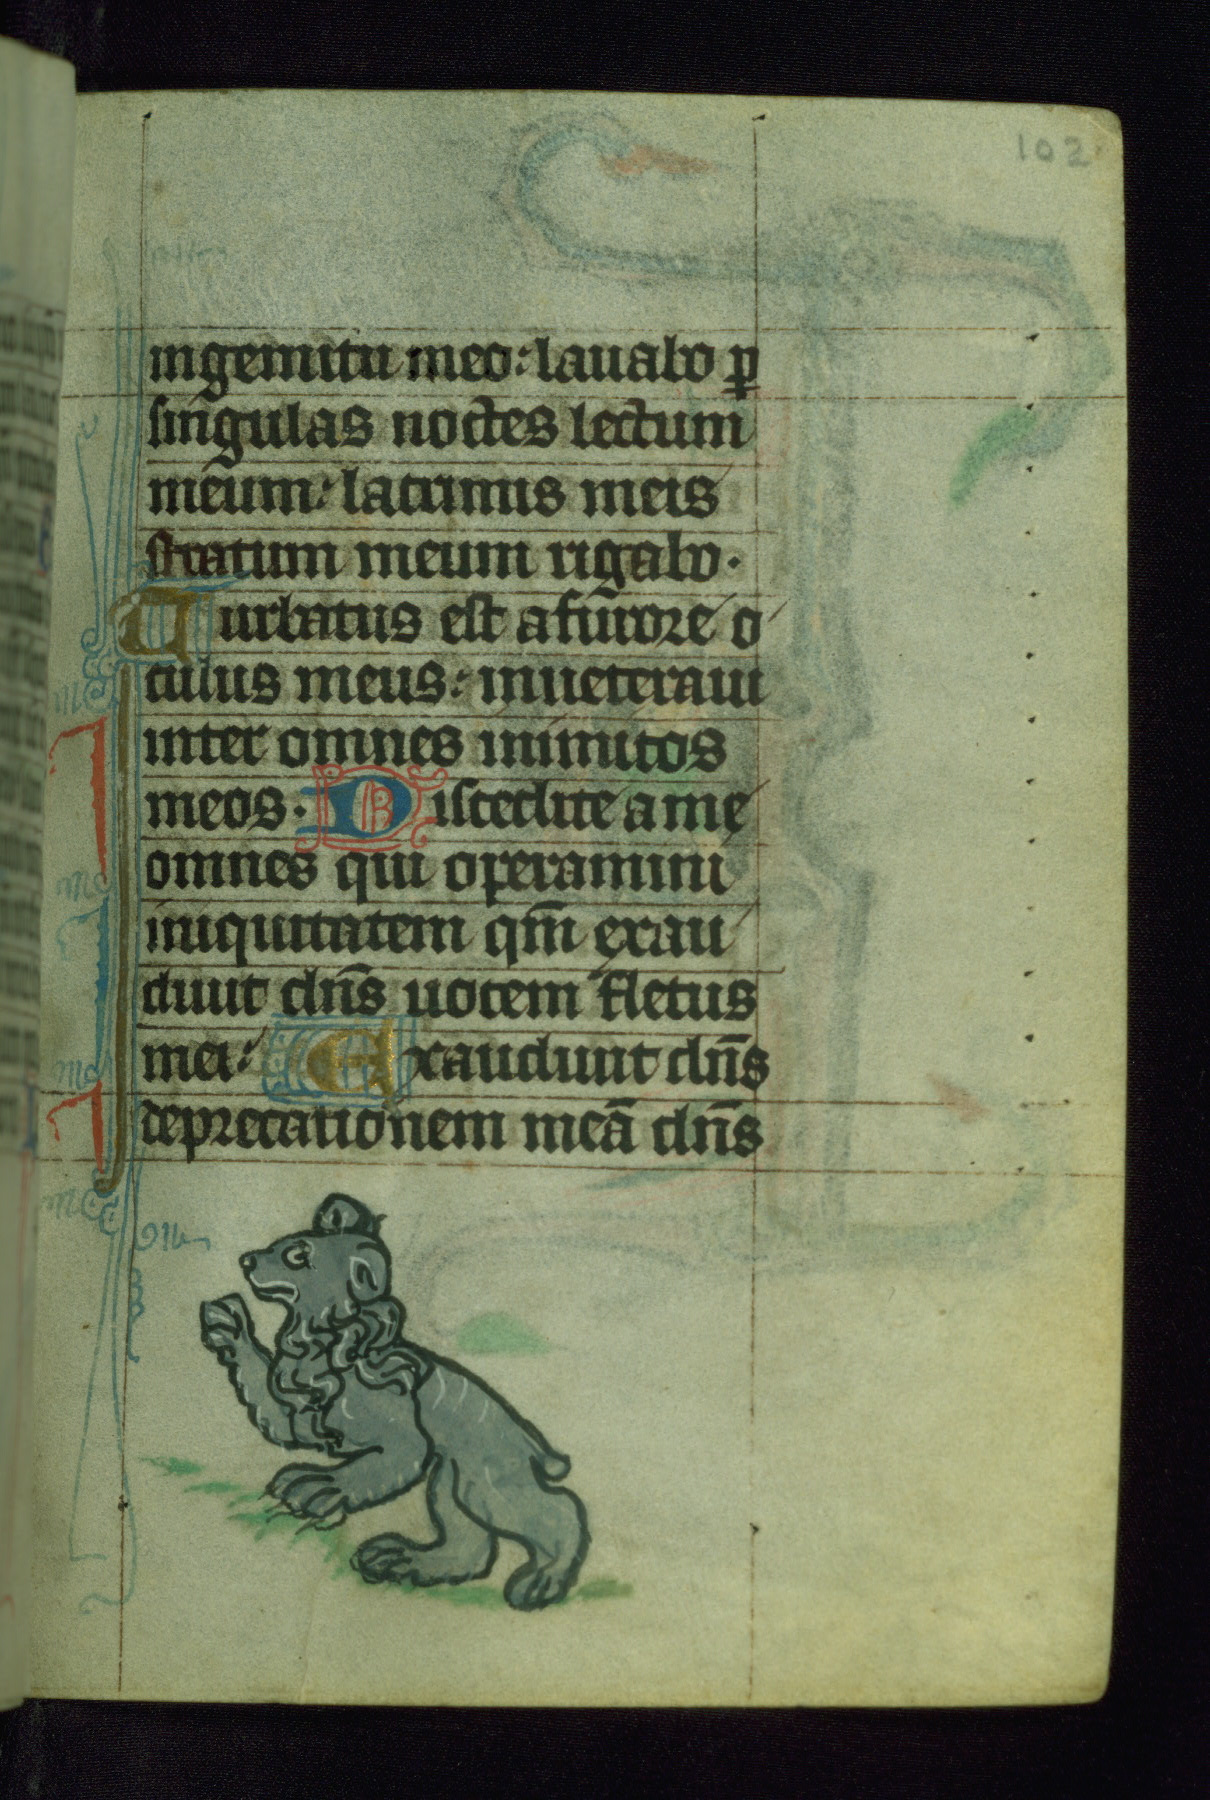 102
in gemitu meo: lauabo p̱
singulas noctes lectum
meum: lacrimis meis
stratum meum rigabo.
Turbatus est a furore o
culus meus: inueteraui
inter omnes inimicos
meos. Discedite a me
omnes qui operamini
iniquitatem qm̄ exau
diuit dn̄s uocem fletus
mei: Exaudiuit dn̄s
deprecationem meā dn̄s